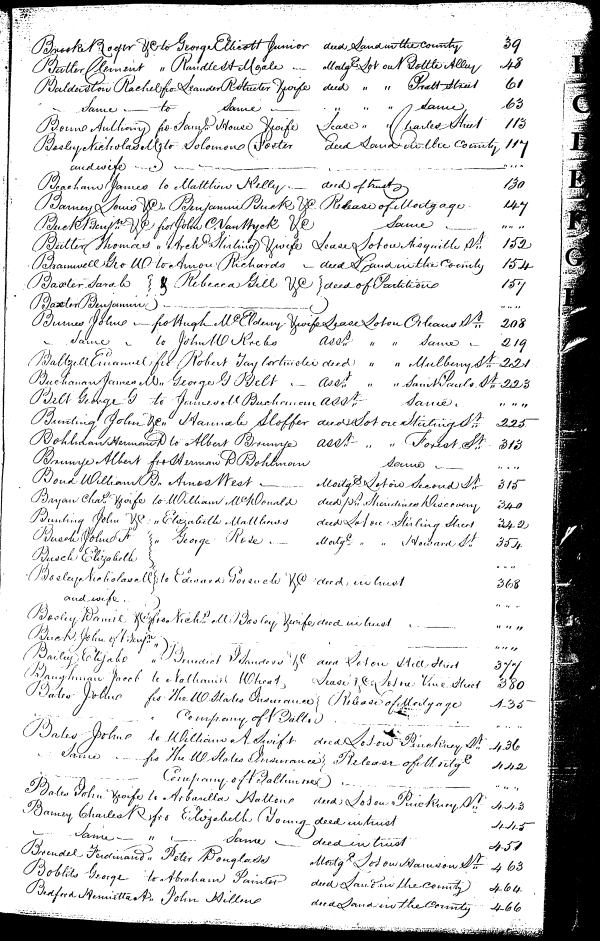 Brook Roger &C to George Ellicott Junior deed Land in the County 39
Butler Clement " Randle H Moale — Motgs Lot on N Bottle Alley 48
Balderston Rachel fro Leander R Streeter & wife deed " " Pratt Street 61
" Same — to Same " " " Same 63
Borne Anthony fro Saml House & wife Lease " " Charles Street 113
Bosley Nicholas M} to Solomon Foster deed Land in the County 117
and wife } " " "
Beacham James to Matthew Kelly — deed of trust 130
Barney Louis &C " Benjamin Buck &C Release of Mortgage 147
Buck Benjn &C fro John C. Van Wyck &C Same — " " "
Butler Thomas " Archd Stirling & wife Lease Lot on Asquith St. 152
Bramwell Geo W to Amon Richards — deed Land in the County 154
Baxter Sarah } & Rebecca Gill &C } deed of Partition 157
Baxter Benjamin } " " "
Burnes John — fro Hugh McElderry & wife Lease Lot on Orleans St. 208
" Same " to John W Krebs asst. " " Same — 219
Baltzell Emanuel fro Robert Taylor trustee deed " " Mulberry St 221
Buchanan James M " George G Belt — asst. " " Saint Pauls St. 223
Belt George G to James M Buchanan asst. Same. " " "
Bunting John &C " Hannah Sloffer deed Lot on Stirling St. 225
Bohlman Herman D to Albert Brunye asst. " " Forest St. 313
Brunye Albert fro Herman D Bohlman Same — " " "
Bond William B " Amos West — Motgs Lot on Second St. 315
Bryan Chas. & wife to William McDonald deed Discovery 340
Bunting John &C " Elizabeth Matthews deed Lot on Stirling Street 342
Busch John F } " George Rose — Motgs " " Howard St 354
Busch Elizabeth } " " "
Bosley Nicholas M } to Edward Gorsuch &C deed in trust 368
and wife } " " "
Bosley Daniel &C fro Nichs M Bosley & wife deed in trust — " " "
Buck John of Benjn } " " "
Bailey Elijah " Benedict J Sanders &C deed Lot on Hill Street 377
Baughman Jacob to Nathaniel Wheat, Lease &C Lot on Vine Street 380
Bates John fro The U States Insurance } Release of Mortgage 435
" Company of Balto } " " "
Bates John to William A Swift deed Lot on Pinckney St. 436
" Same — fro The U States Insurance } Release of Mortgs 442
Company of Baltimore } " " "
Bates John & wife to Arbarilla Hattone deed Lot on Pinckney St. 443
Barney Charles R fro Elizabeth Young deed in trust 445
" Same — " " Same — deed in trust 451
Brendel Ferdinand " Peter Douglass Motgs Lot on Harrison St. 463
Boblits George to Abraham Painter deed Land in the County 464
Bedford Henrietta A " John Hillen deed Land in the County 466